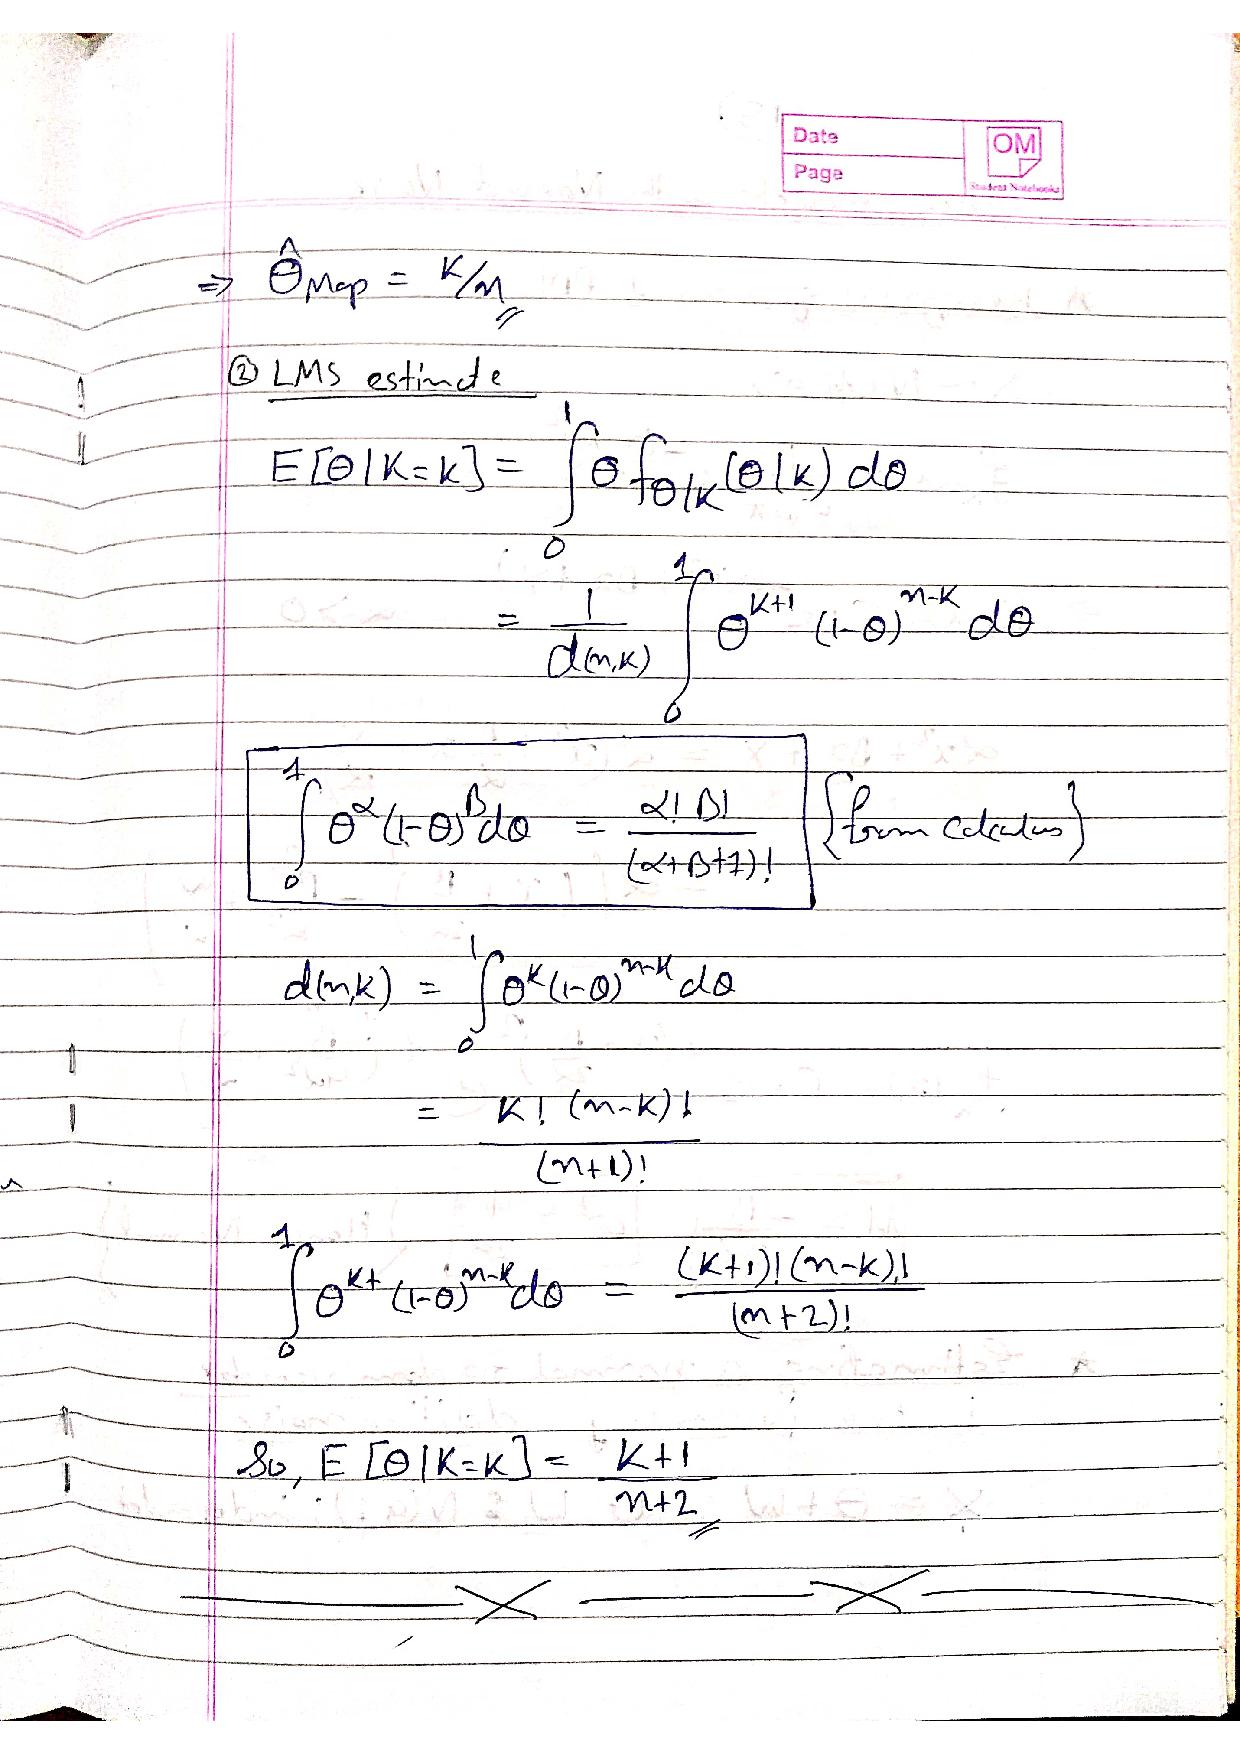 Date
Page
OM
Student Notebooks
⇒ Θ̂Map = K/n
② LMS estimate
E[Θ|K=k] = ∫₀¹ θ fΘ|K (θ|k) dθ
= 1/d(n,k) ∫₀¹ θ^(k+1) (1-θ)^(n-k) dθ
∫₀¹ θ^α (1-θ)^β dθ = α! β! / (α+β+1)! {from calculus}
d(n,k) = ∫₀¹ θ^k (1-θ)^(n-k) dθ
= k! (n-k)! / (n+1)!
∫₀¹ θ^(k+ (1-θ)^(n-k) dθ = (k+1)! (n-k)! / (n+2)!
So, E[Θ|K=k] = k+1 / n+2